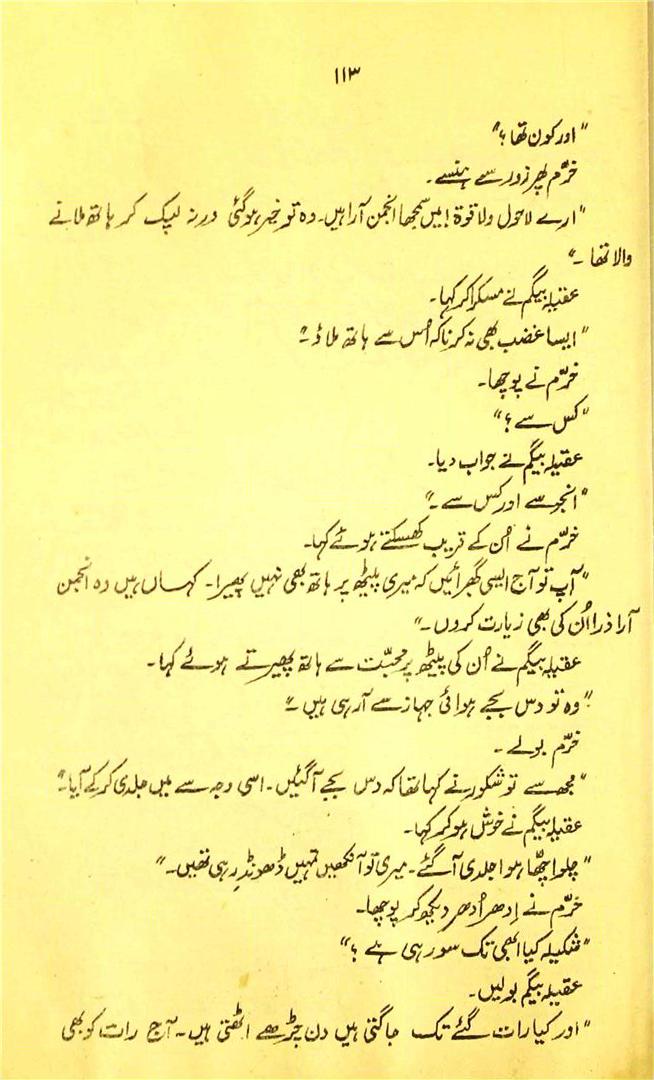 ۱۱۳
"اور کون تھا؟"
خرّم پھر زور سے ہنسے۔
"ارے لاحول ولا قوۃ! میں سمجھا انجمن آرا ہیں۔ وہ تو خیر ہو گئی ورنہ لپک کر ہاتھ ملانے
والا تھا۔"
عقیلہ بیگم نے مسکرا کر کہا۔
"ایسا غضب بھی نہ کرنا کہ اُس سے ہاتھ ملاؤ۔"
خرّم نے پوچھا۔
"کس سے؟"
عقیلہ بیگم نے جواب دیا۔
"انجو سے اور کس سے۔"
خرّم نے اُن کے قریب کھسکتے ہوئے کہا۔
"آپ تو آج ایسی گھبرائیں کہ میری پیٹھ پر ہاتھ بھی نہیں پھیرا۔ کہاں ہیں وہ انجمن
آرا ذرا اُن کی بھی زیارت کروں۔"
عقیلہ بیگم نے اُن کی پیٹھ پر محبّت سے ہاتھ پھیرتے ہوئے کہا۔
"وہ تو دس بجے ہوائی جہاز سے آ رہی ہیں۔"
خرّم بولے۔
"مجھ سے تو شکور نے کہا تھا کہ دس بجے آ گئیں۔ اسی وجہ سے میں جلدی کر کے آیا۔"
عقیلہ بیگم نے خوش ہو کر کہا۔
"چلو اچھّا ہوا جلدی آ گئے۔ میری تو آنکھیں تمہیں ڈھونڈ رہی تھیں۔"
خرّم نے اِدھر اُدھر دیکھ کر پوچھا۔
"شکیلہ کیا ابھی تک سو رہی ہے؟"
عقیلہ بیگم بولیں۔
"اور کیا رات گئے تک جاگتی ہیں دن چڑھے اٹھتی ہیں۔ آج رات کو بھی